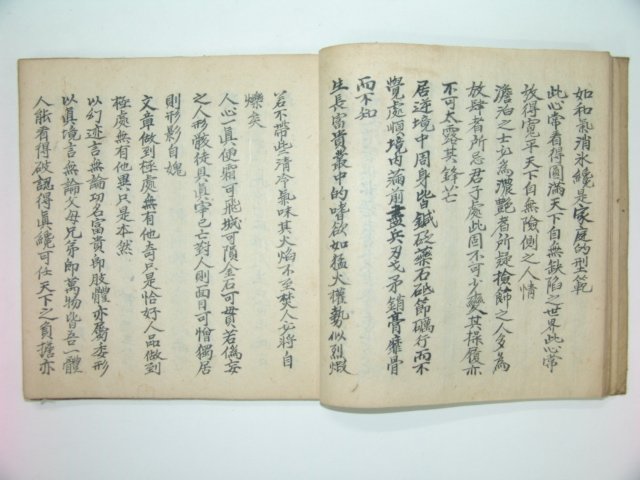 如和氣消氷纔是家庭的型範
此心常看得圓滿天下自無缺陷之世界此心常
放得寬平天下自無險側之人情
澹泊之士必爲濃艶者所疑檢飾之人多爲
放肆者所忌君子處此固不可少變其操履亦
不可太露其鋒芒
居逆境中周身皆鍼砭藥石砥節礪行而不
覺處順境內滿前盡兵刃戈矛銷膏靡骨
而不知
生長富貴叢中的嗜欲如猛火權勢似烈煅
若不帶些清冷氣味其火焰不至焚人必將自
爍矣
人心一眞便霜可飛城可隕金石可貫若僞妄
之人形骸徒具眞宰已亡對人則面目可憎獨居
則形影自媿
文章做到極處無有他奇只是恰好人品做到
極處無有他異只是本然
以幻迹言無論功名富貴卽肢體亦屬委形
以眞境言無論父母兄弟卽萬物皆吾一體
人能看得破認得眞纔可任天下之負擔亦